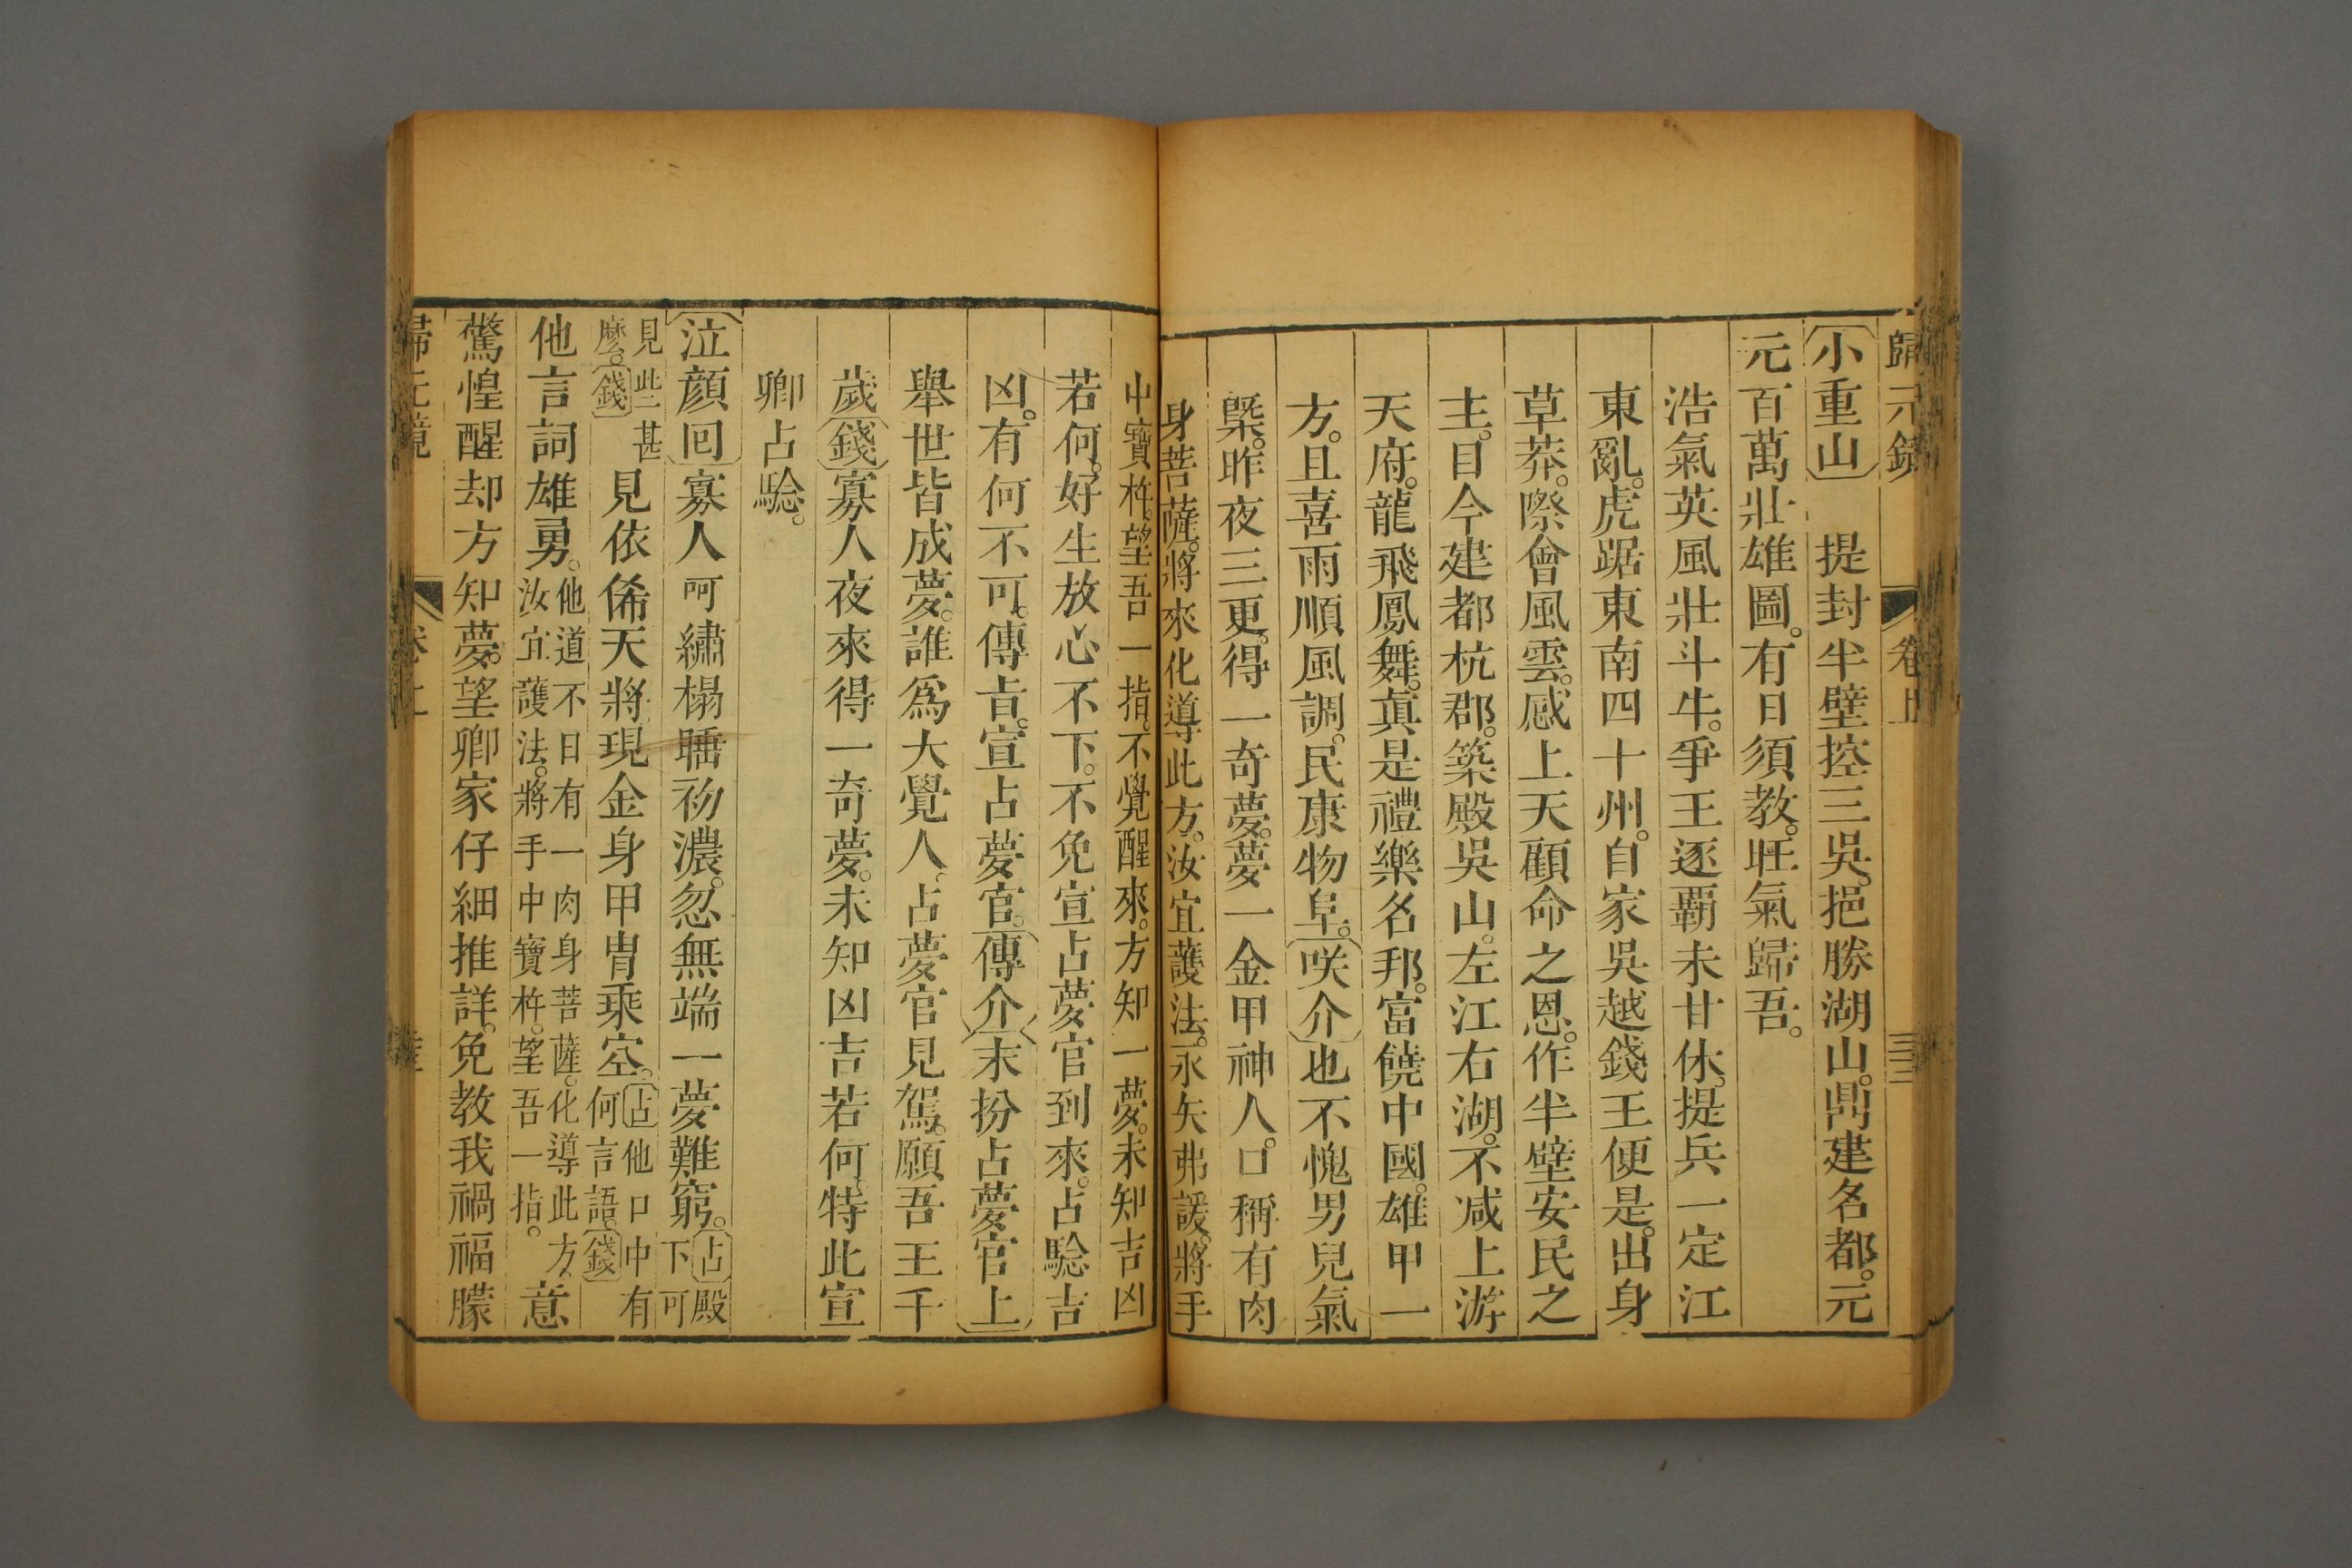 歸元鏡 卷上 三二
小重山 提封半壁控三吳。挹勝湖山。鼎建名都。元
元百萬壯雄圖。有日須教。旺氣歸吾。
浩氣英風壯斗牛。爭王逐覇未甘休。提兵一定江
東亂。虎踞東南四十州。自家吳越錢王便是。出身
草莽。際會風雲。感上天顧命之恩。作半壁安民之
主。目今建都杭郡。築殿吳山。左江右湖。不減上游
天府。龍飛鳳舞。眞是禮樂名邦。富饒中國。雄甲一
方。且喜雨順風調。民康物阜。咲介也不愧男兒氣
槩。昨夜三更。得一奇夢。夢一金甲神人。口稱有肉
身菩薩。將來化導此方。汝宜護法。永矢弗諼。將手
中寶杵。望吾一指。不覺醒來。方知一夢。未知吉凶
若何。好生放心不下。不免宣占夢官到來。占騐吉
凶。有何不可。傳旨。宣占夢官。傳介末扮占夢官上
舉世皆成夢。誰爲大覺人。占夢官見駕。願吾王千
歲錢寡人夜來得一奇夢。未知凶吉若何。特此宣
卿占騐。
泣顔回寡人呵繡榻睡初濃。忽無端一夢難窮。占殿
下可
見些甚
麽。錢見依俙天將現金身甲冑乘空。占他口中有
何言語。錢
他言詞雄勇。他道不日有一肉身菩薩。化導此方。
汝宜護法。將手中寶杵。望吾一指。意
驚惶醒却方知夢。望卿家仔細推詳。免教我禍福朦
歸元鏡 卷上